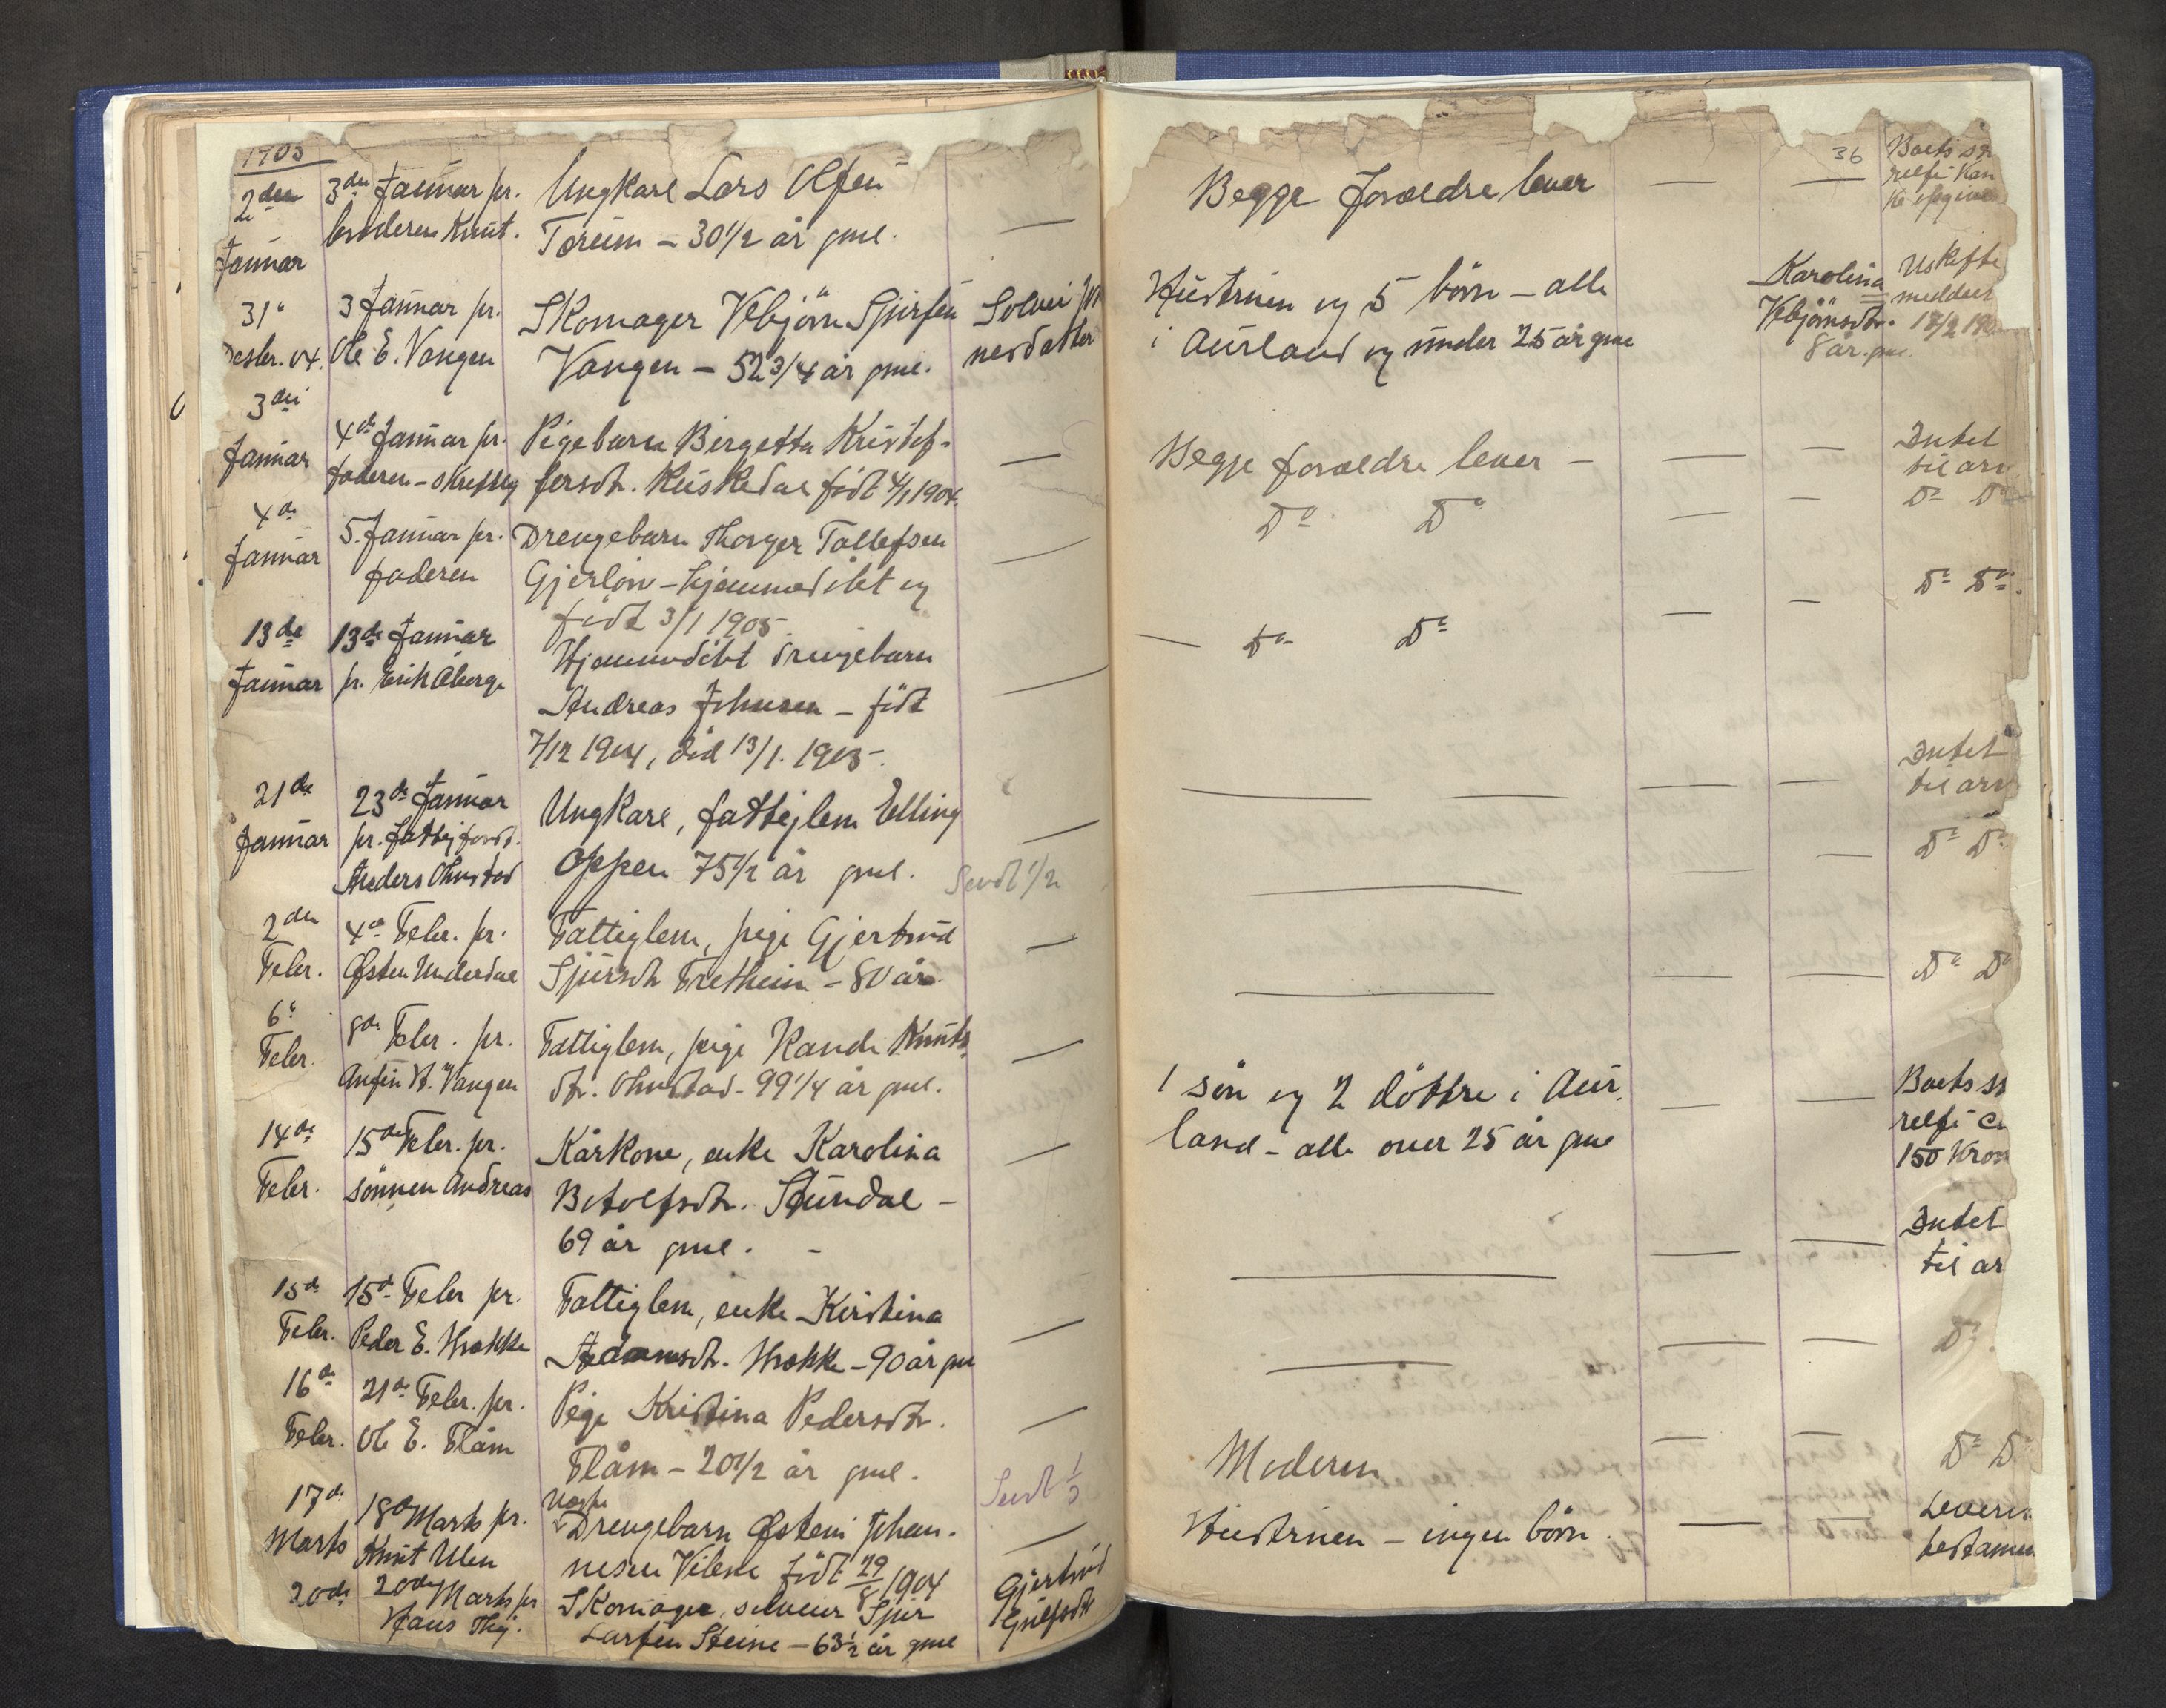 1905
2den Januar
3de Januar pr. broderen Knut.
Ungkarl Lars Olsen
Tereim – 30 1/2 år gml.
—
31' Desbr. 04.
3 Januar pr. Ole E. Vangen
Skomager Vebjörn Sjursen
Vangen – 52 3/4 år gml.
3die Januar
4de Januar pr. faderen – skriftlig
Pigebarn Birgetta Kristof-
fersdtr. Kuskedal födt 4/1 1904.
—
4de Januar
5. Januar pr. faderen
Drengebarn Thorger Tollefsen
Gjerløw – hjemmedöbt og
födt 3/1 1905.
—
13de Januar
13de Januar pr. Erik Åberge
Hjemmedöbt drengebarn
Andreas Johnsen – födt
7/12 1904, död 13/1. 1905.
—
21de Januar
23de Januar pr. fattigforst. Anders Ohnstad
Ungkarl, fattiglem Elling
Oppen 75 1/2 år gml.
—
Sendt 1/2
2den Febr.
4de Febr. pr. Østen Underdal
Fattiglem, pige Gjertrud
Sjursdtr Fretheim – 80 år
—
6' Febr.
8de Febr. pr. Anfin V. Vangen
Fattiglem, pige Randi Knuts
dtr. Ohnstad – 99 1/4 år gml.
—
14de Febr.
15de Febr. pr. sönnen Andreas
Kårkone, enke Karolina
Botolfsdtr. Stundal –
69 år gml. –
—
15de Febr.
15de Febr pr. Peder E. Brekke
Fattiglem, enke Kirstina
Adamsdtr. Brekke – 90 år gml
—
16de Febr.
21de Febr. pr. Ole E. Flåm
Pige Kristina Pedersdtr.
Flåm – 20 1/2 år gml.
—
Sendt 1/3
17de Marts
18de Marts pr. Knut Ulen
Uægte
Drengebarn Østein Johan-
nesen Vilene födt 29/8 1904
—
20de
20de Marts pr Hans Thj.
Skomager, selveier Sjur
Larsen Steine – 63 1/2 år gml
Gjertrud
Gulfsdtr
36
Begge forældre lever
— —
Boets
Hustruen og 5 börn – alle
i Aurland og under 25 år gml
Karolina
Vebjörnsdtr.
8 år. gml.
Uskifte
meddelt
Begge forældre lever –
— —
Intet
til arv
Do Do
— —
Do Do
— Do Do
— —
Do Do.
— —
— —
Intet
til arv
—
— —
Do Do
—
— —
Do Do
1 sön og 2 döttre i Aur-
land – alle over 25 år gml
— —
Boets
150 Kron
—
— —
Intet
til ar
—
— —
Do
Moderen
— —
Do Do
Hustruen – ingen börn.
— —